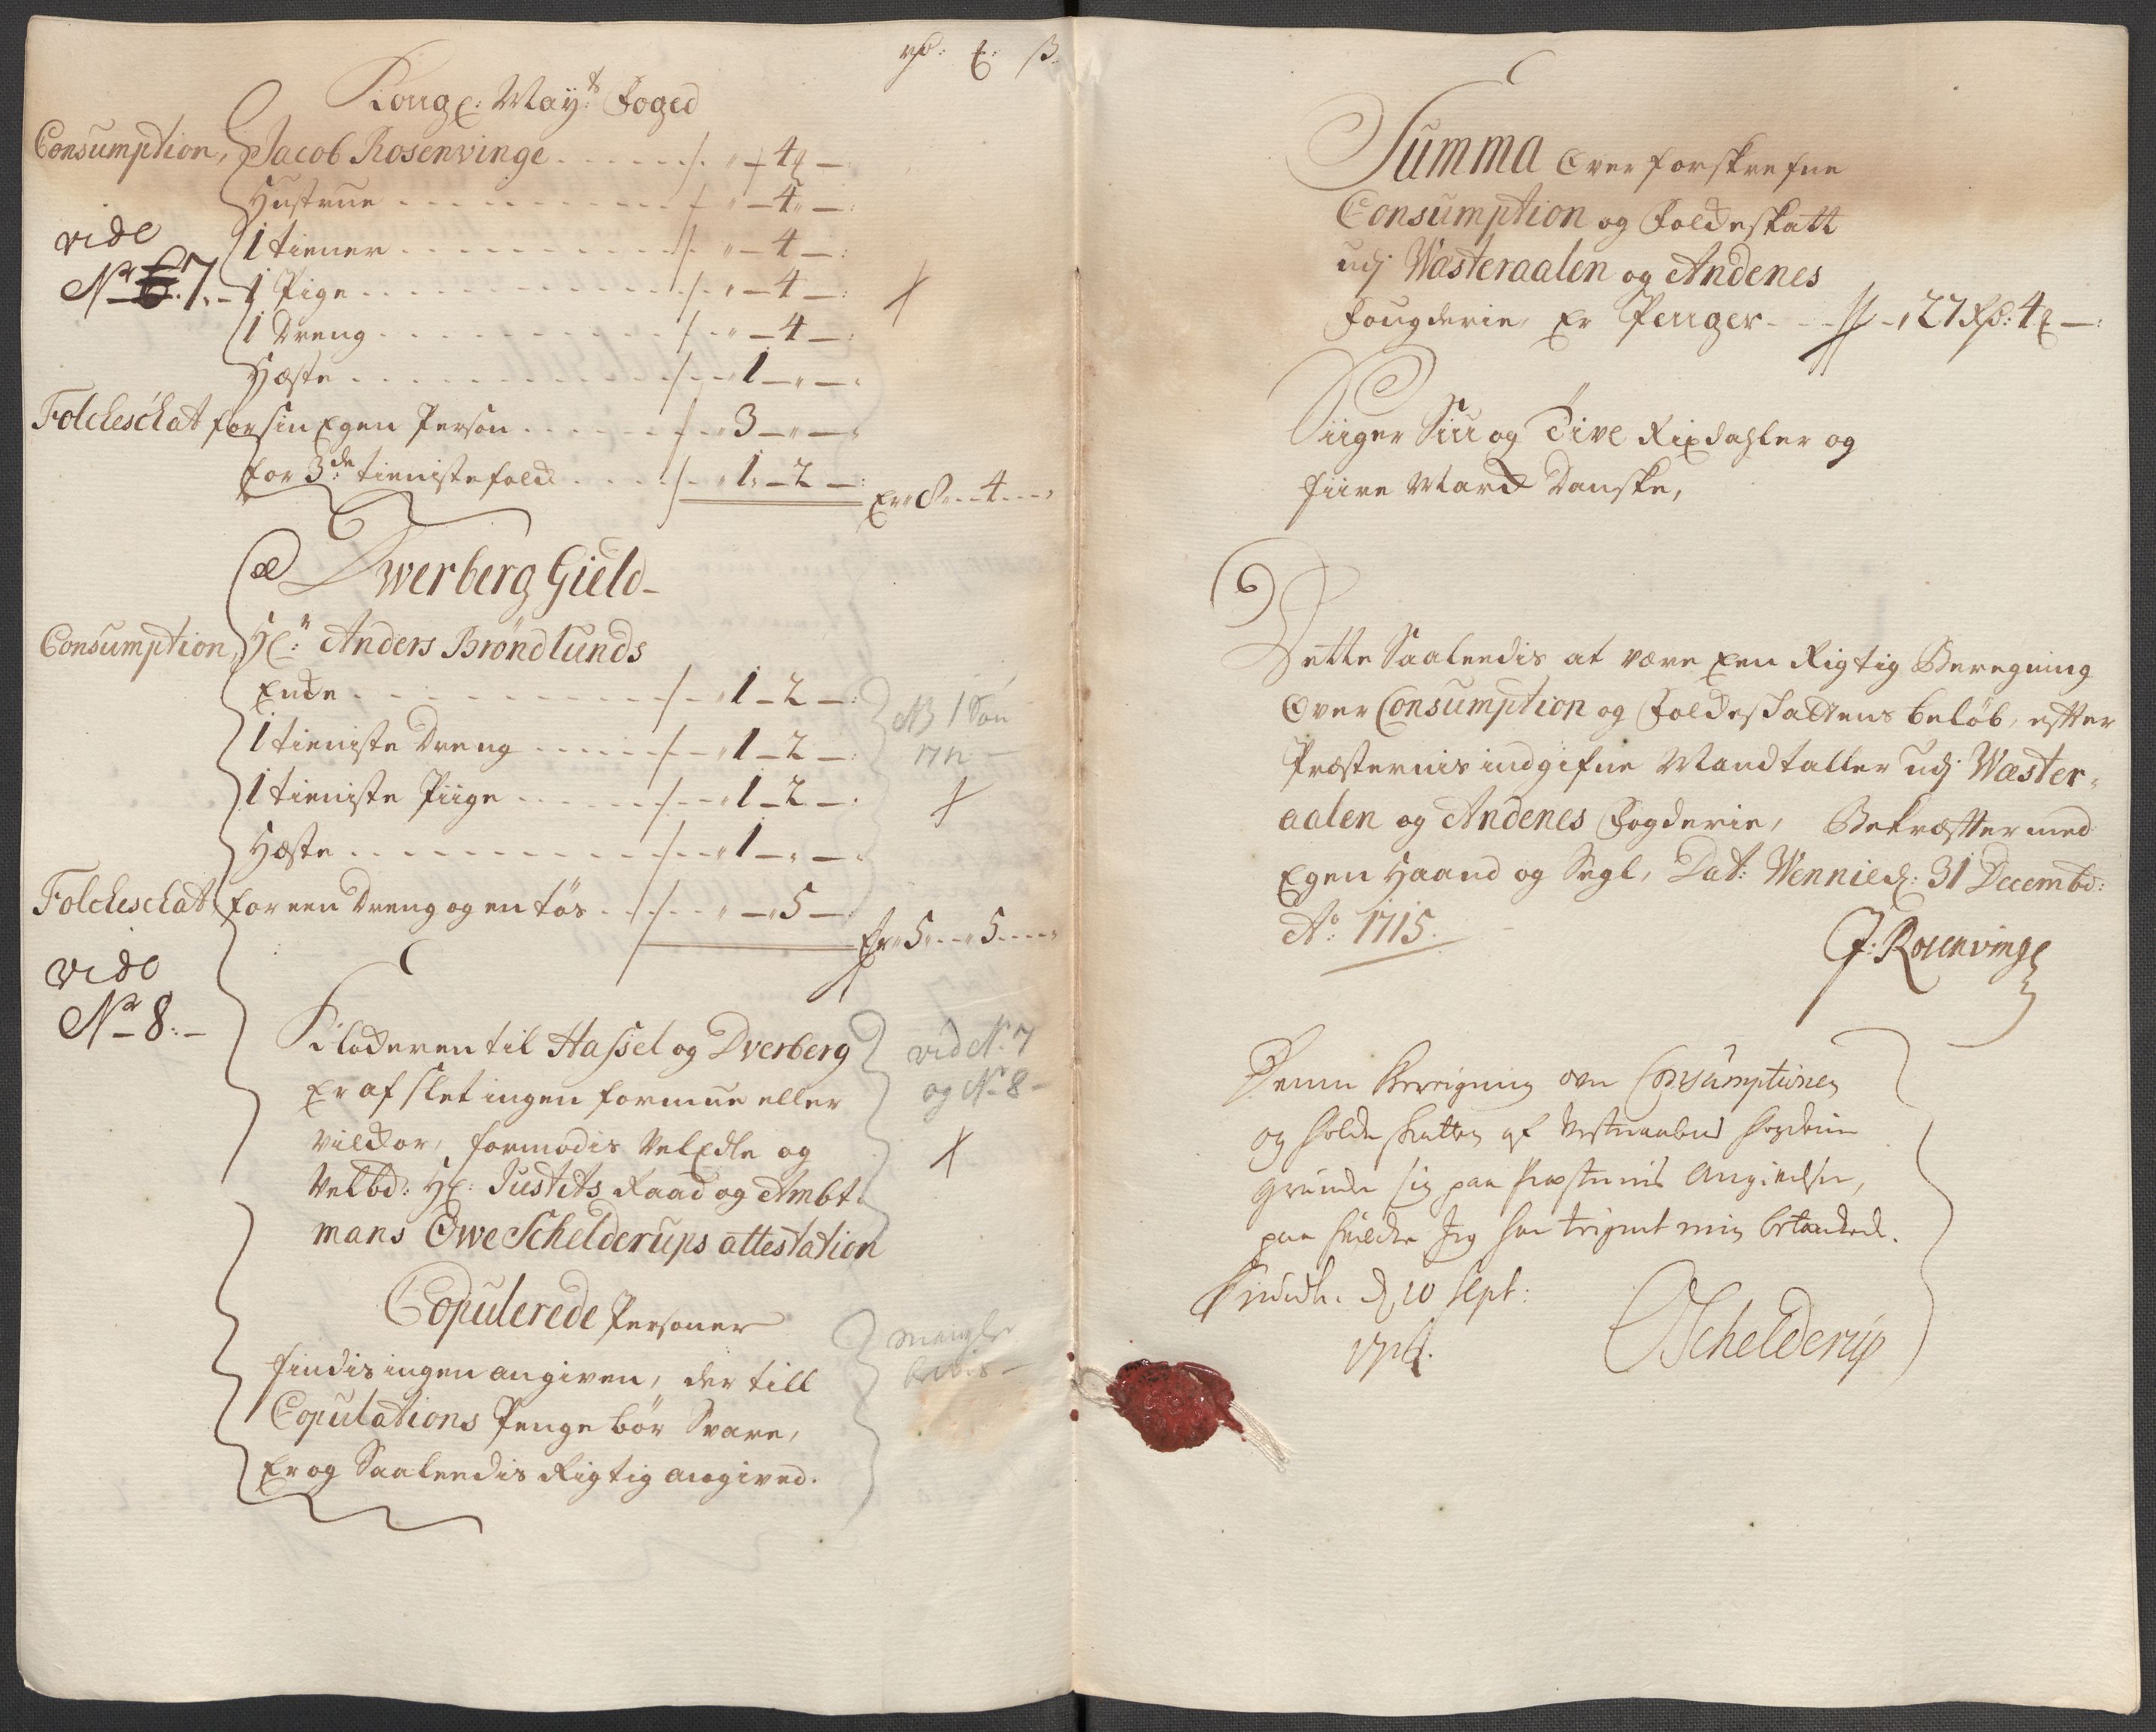 rd: ℔: ß.
Kongl: May:t Foged
Consumption, Jacob Rosenvinge ...... " - 4 ℔ -
Hustrue ...... " - 4 " -
vide
1 tiener ...... " - 4 - :
N:r 7.- 1 Pige ...... " - 4 - :
1 Dreng ...... " - 4 - :
Hæste ...... " 1 - " - "
Folcheschat for sin Egen Person ...... " 3 - " - "
for 3de tienistefolck ...... " 1 - 2 - :
Er " 8 - - 4 - - -
Dwerberg Gield
Consumption Hr: Anders Bröndlunds
Encke ...... " 1 - 2 - :
NB 1 Søn
1 tieniste Dreng ...... " 1 - 2 - :
1 tieniste Piige ...... " 1 - 2 - :
Hæste ...... " 1 - " - "
Folcheschat for een Dreng og en tös ...... " - " 5 -
Er " 5 - - " 5 - - -
vide
N:r 8:-
Klockeren til Hassel og Dverberg
vid N:7
Er af slet ingen formue eller
og N: 8 -
vilckor, formodis VelEdle og
Velbd: Hr: Justits Raad og Ambt
mans Owe Schelderups attestation
Copulerede Personer
findis ingen angiven, der till
bevis -
Copulations Penge bör Svare,
Er og Saaleedis Rigtig angived.
Summa Over forskrefne
Consumption og Folckeskatt
udj Wæsteraalen og Andenes
Fougderie, Er Penger - - - 27 Rd: 4 ℔ - :
Siiger Siu og Tive Rixdahler og
fiire Marck Danske,
Dette Saaleedis at være Een Rigtig Beregning
Over Consumption og Folckeschattens beløb, efter
Præsternis indgifne Mandtaller udj Wæster-
aalen og Andenes Fogderie, Bekræfter med
Egen Haand og Segl, Dat: Wennie d: 31 Decembr:
A:o 1715.
J: Rosenvinge
Denne Bereigning over Consumptionen
og folcke skatten af Vesteraalens fogderie
grunder sig paa Præsternis Angivelse,
paa hvilcke Jeg har teignet min betænckende.
d. 10 Sept:
1716.
OSchelderup